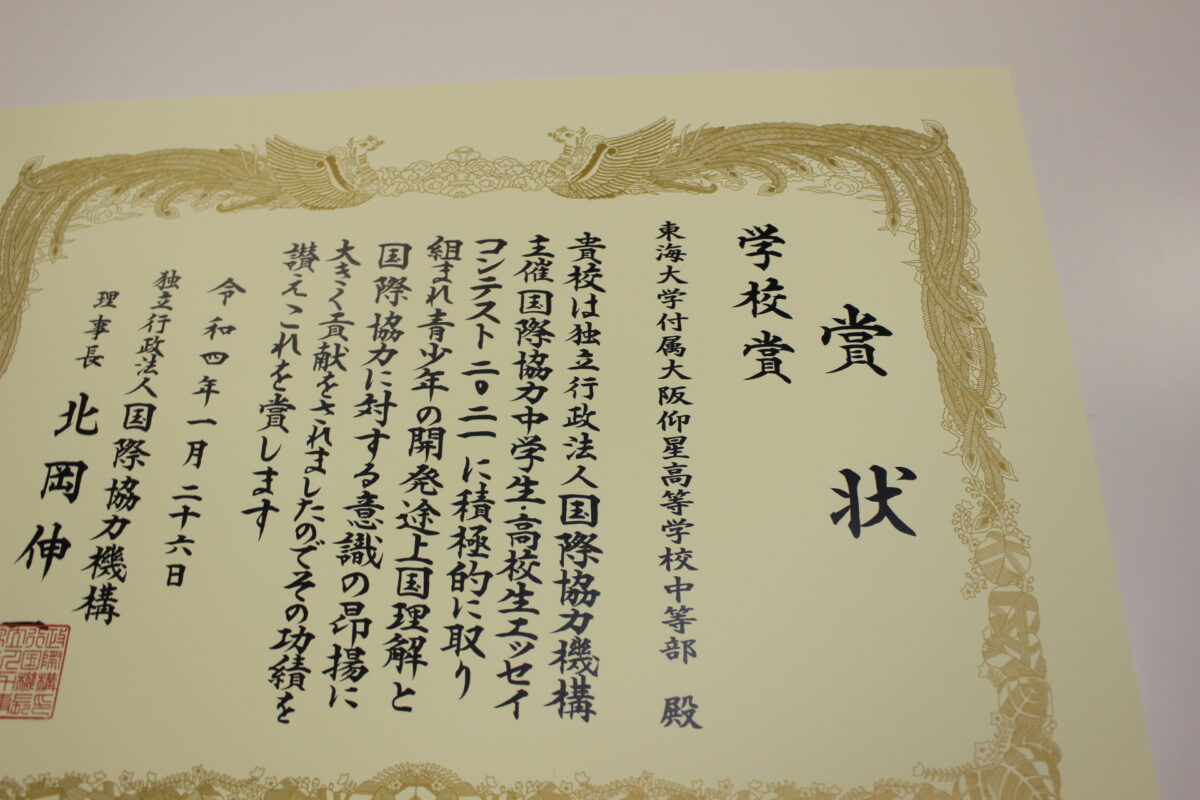 賞状
学校賞
東海大学付属大阪仰星高等学校中等部 殿
貴校は独立行政法人国際協力機構
主催国際協力中学生・高校生エッセイ
コンテスト二〇二一に積極的に取り
組まれ青少年の開発途上国理解と
国際協力に対する意識の昂揚に
大きく貢献をされましたのでその功績を
讃えこれを賞します
令和四年一月二十六日
独立行政法人国際協力機構
理事長 北岡伸一